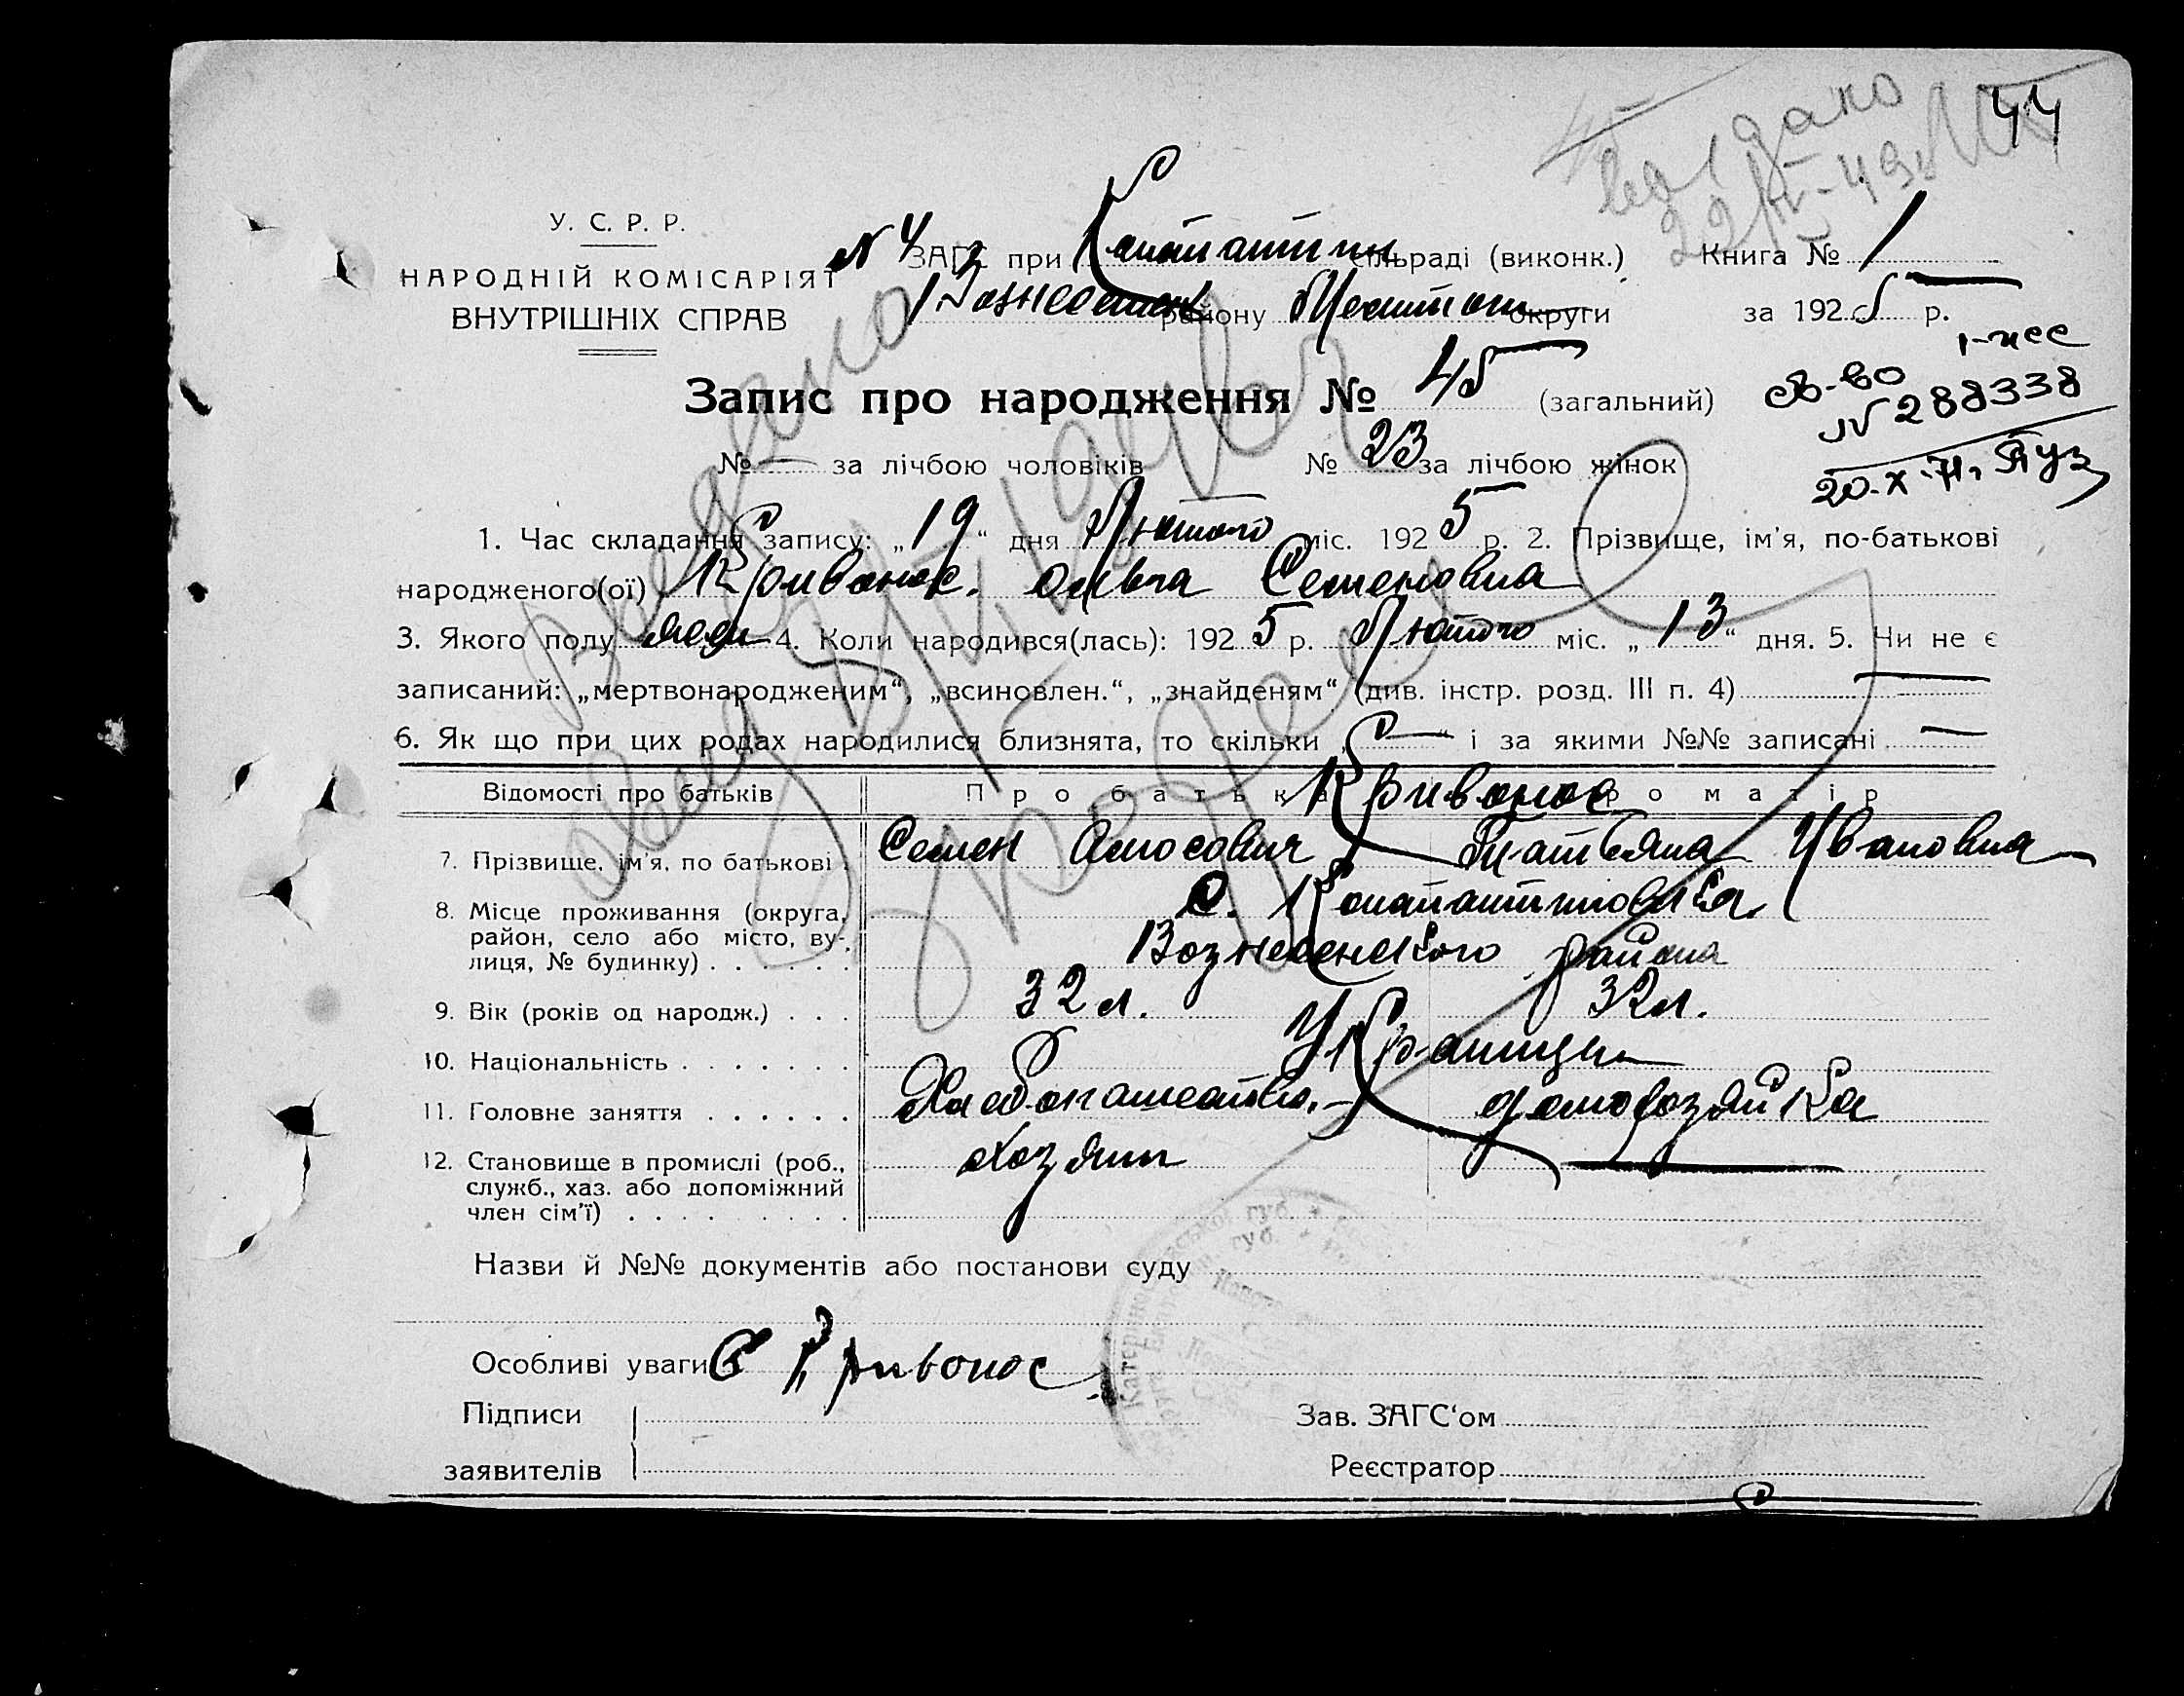 44
видано
22/IV-49
У. С. Р. Р.
НАРОДНІЙ КОМІСАРІЯТ
ВНУТРІШНІХ СПРАВ
N 4 ЗАГС при Константин сільраді (виконк.) Книга № 1
Вознесенск району округи за 1925 р.
Запис про народження № 45 (загальний)
1-нее
св-во
N 288338
20-X-71.
№ — за лічбою чоловіків № 23 за лічбою жінок
1. Час складання запису: „19“ дня Лютого міс. 1925 р. 2. Прізвище, ім'я, по-батькові
народженого(ої) Кривонос. Ольга Семеновна
3. Якого полу 4. Коли народився(лась): 1925 р. Лютого міс. „13“ дня. 5. Чи не є
записаний: „мертвонародженим“, „всиновлен.“, „знайденям“ (див. інстр. розд. III п. 4) —
6. Як що при цих родах народилися близнята, то скільки „—“ і за якими №№ записані —
Відомості про батьків Про батька Про матір
Кривонос
7. Прізвище, ім'я, по батькові Семен Амосович Татьяна Ивановна
8. Місце проживання (округа, район, село або місто, вулиця, № будинку) . . . . . . с. Константиновка,
Вознесенского района
9. Вік (років од народж.) . . . 32 л. 32 л.
10. Національність . . . . . . . Украинцы
11. Головне заняття . . . . . . Хлебопашество. домохозяйка
12. Становище в промислі (роб., служб., хаз. або допоміжний член сім'ї) . . . . . . . . Хозяин —
Назви й №№ документів або постанови суду
Особливі уваги С Кривонос
Підписи
заявителів
Зав. ЗАГС'ом
Реєстратор